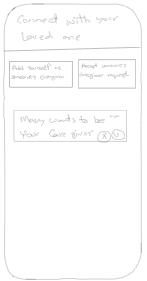 Connect with your
Loved one
Add yourself as
someone's caregiver
Accept someone's
caregiver request
Mary wants to be
Your Care giver X U